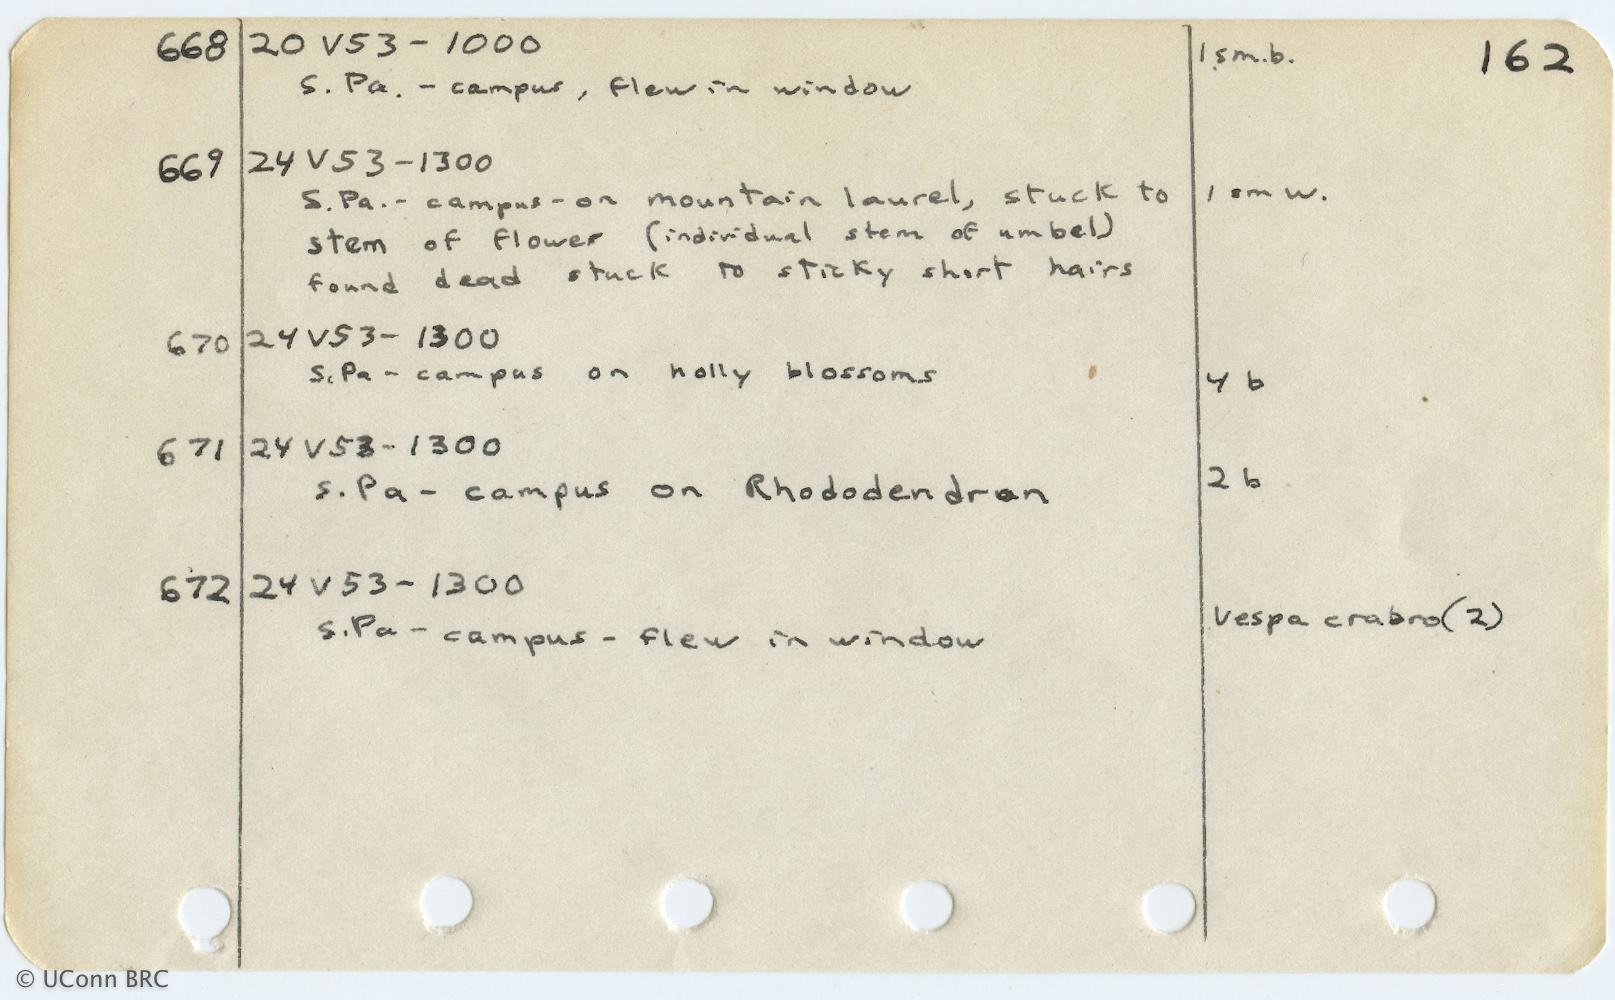 162
668 20 V 53 - 1000
S. Pa. - campus, flew in window 1 sm.b.
669 24 V 53 - 1300
S. Pa. - campus - on mountain laurel, stuck to 1 sm w.
stem of flower (individual stem of umbel)
found dead stuck to sticky short hairs
670 24 V 53 - 1300
S. Pa - campus on holly blossoms 4 b
671 24 V 53 - 1300
S. Pa - campus on Rhododendron 2 b
672 24 V 53 - 1300
S. Pa - campus - flew in window Vespa crabro (2)
© UConn BRC